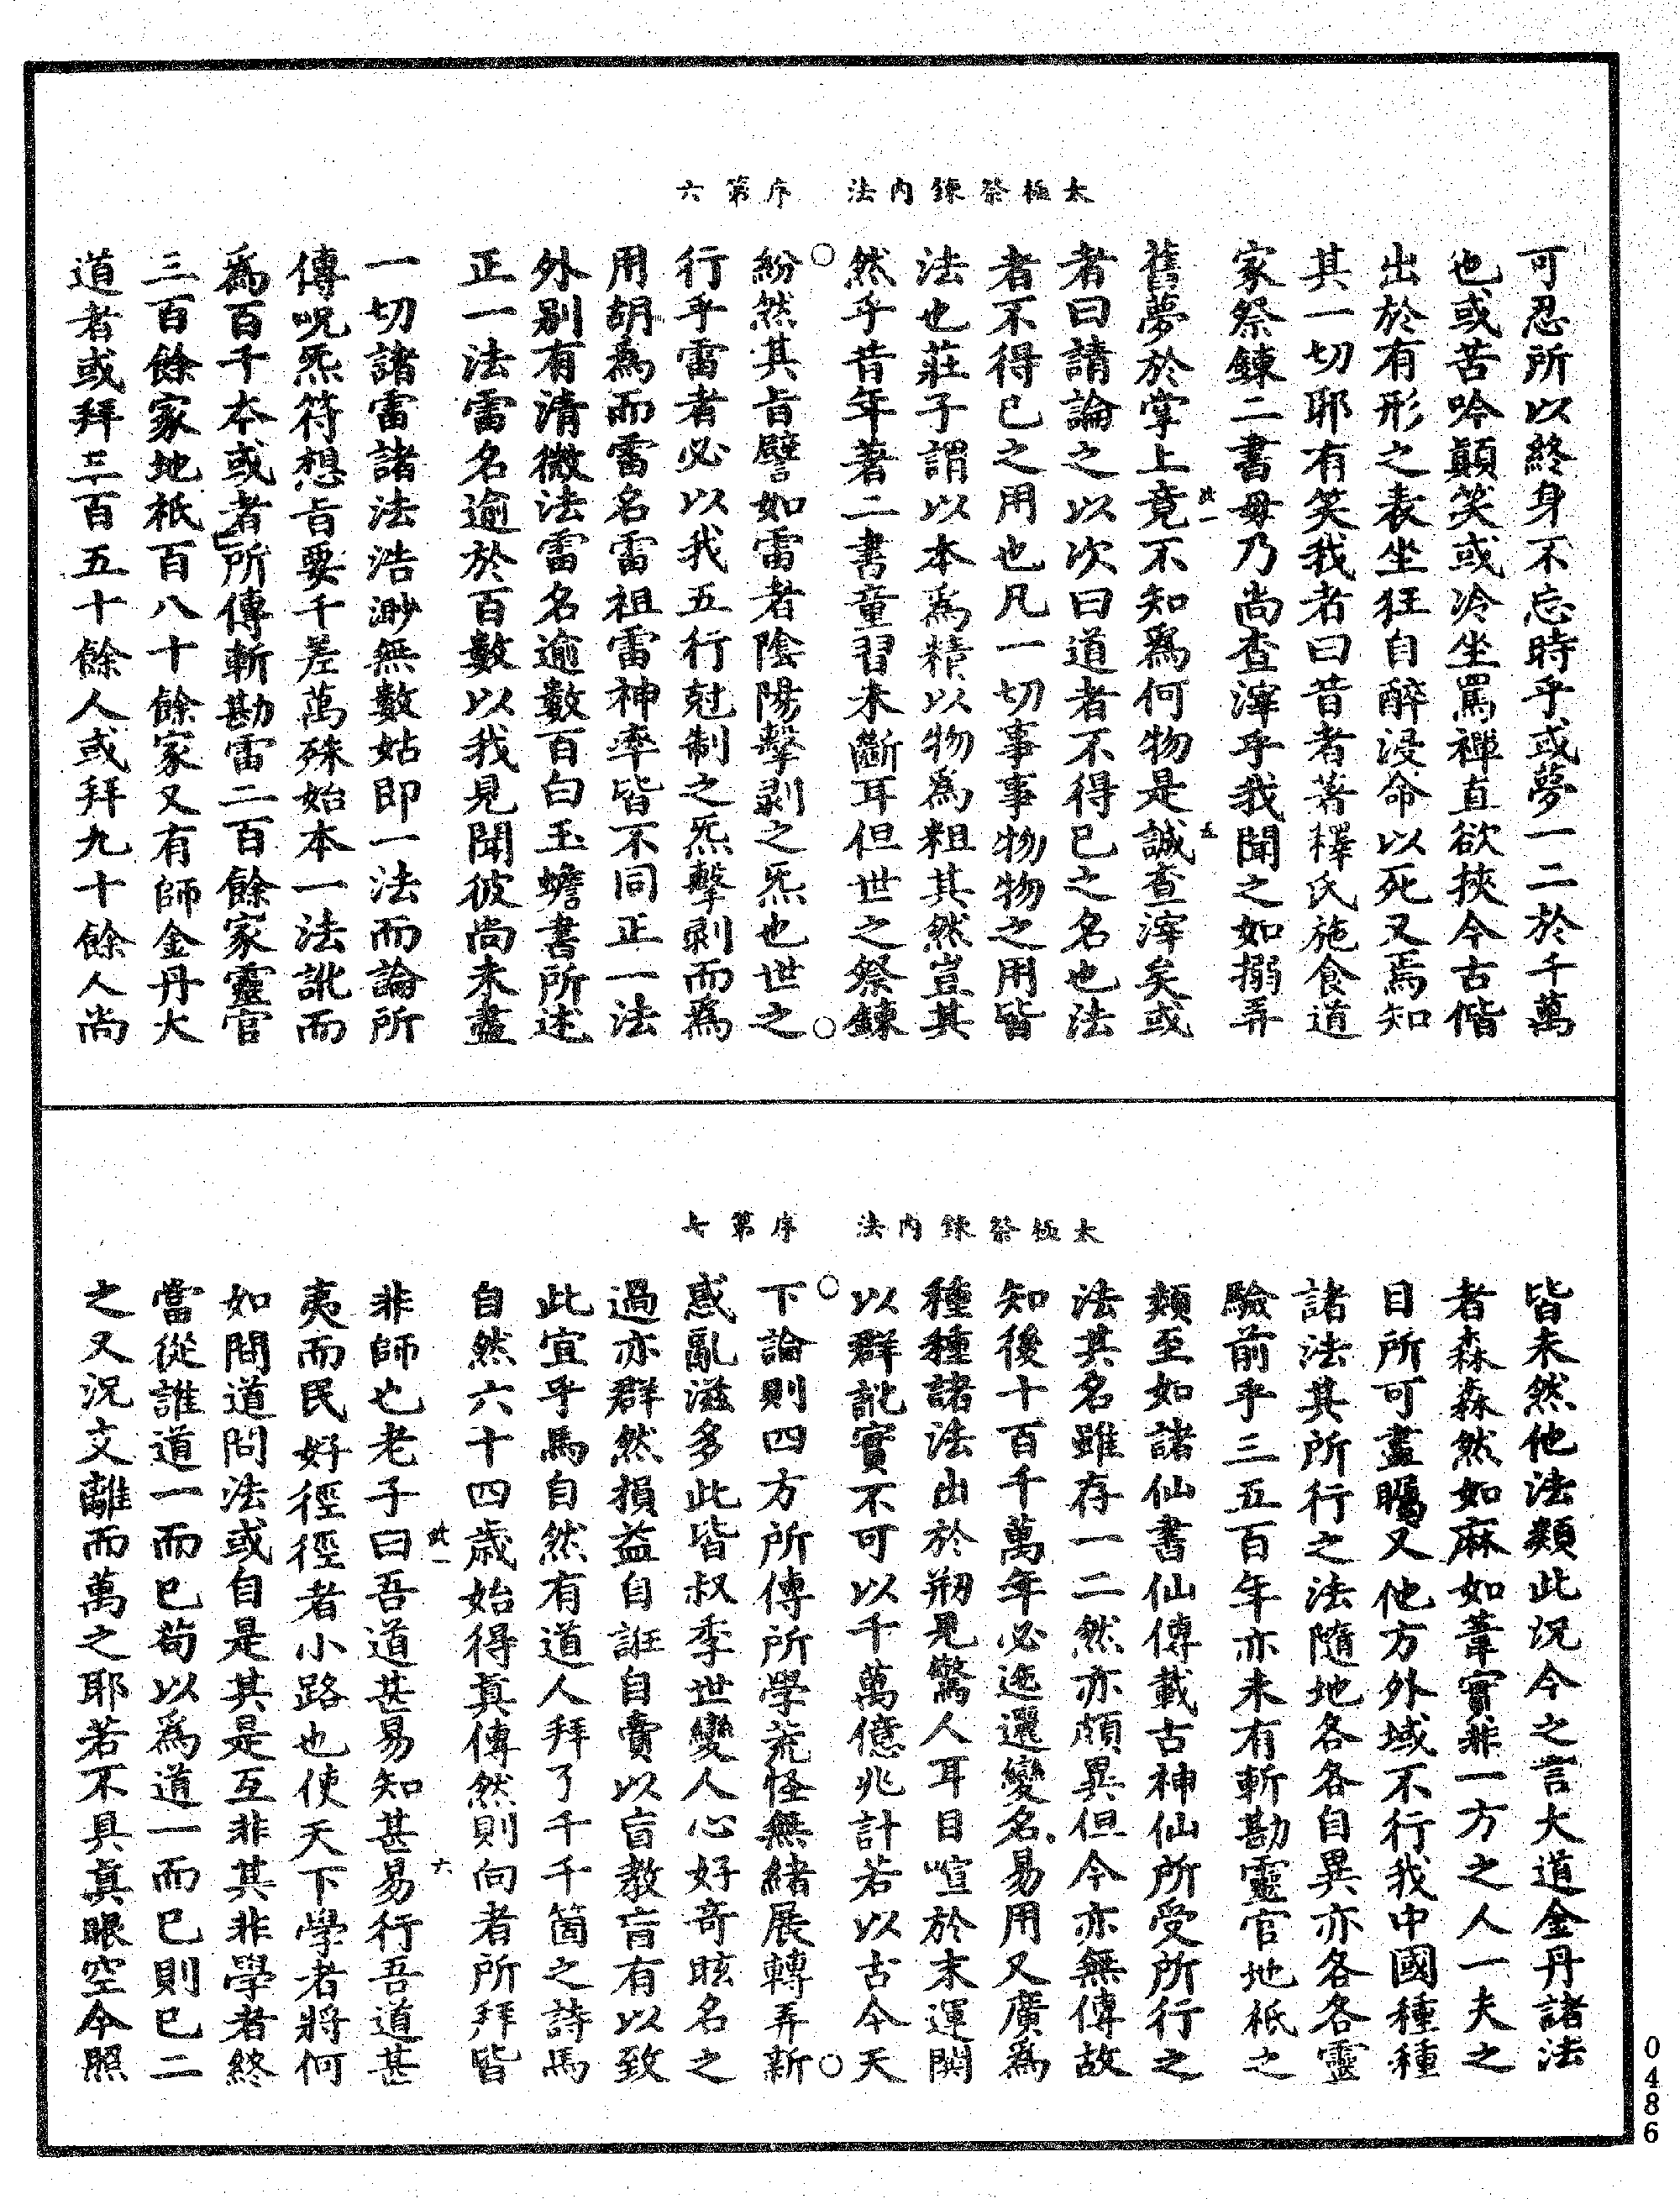 太極祭鍊內法　序第六
可忍所以終身不忘時乎或夢一二於千萬
也或苦吟顛笑或冷坐罵禪直欲挾今古偕
出於有形之表坐狂自醉浸命以死又焉知
其一切耶有笑我者曰昔者著釋氏施食道
家祭鍊二書毋乃尚查滓乎我聞之如搦弄
舊夢於掌上竟不知爲何物是誠查滓矣或
者曰請論之以次曰道者不得已之名也法
者不得已之用也凡一切事事物物之用皆
法也莊子謂以本爲精以物爲粗其然豈其
然乎昔年著二書童習未斷耳但世之祭鍊
紛然其旨譬如雷者陰陽擊剥之炁也世之
行乎雷者必以我五行尅制之炁擊剥而爲
用胡爲而雷名雷祖雷神率皆不同正一法
外别有清微法雷名逾數百白玉蟾書所述
正一法雷名逾於百數以我見聞彼尚未盡
一切諸雷諸法浩渺無數姑即一法而論所
傳呪炁符想旨要千差萬殊始本一法訛而
爲百千本或者所傳斬勘雷二百餘家靈官
三百餘家地祇百八十餘家又有師金丹大
道者或拜三百五十餘人或拜九十餘人尚
太極祭鍊內法　序第七
皆未然他法類此況今之言大道金丹諸法
者森森然如麻如葦實非一方之人一夫之
目所可盡矚又他方外域不行我中國種種
諸法其所行之法隨地各各自異亦各各靈
驗前乎三五百年亦未有斬勘靈官地祇之
類至如諸仙書仙傳載古神仙所受所行之
法其名雖存一二然亦頗異但今亦無傳故
知後十百千萬年必迭遷變名易用又廣爲
種種諸法出於剏見驚人耳目喧於末運閧
以群訛實不可以千萬億兆計若以古今天
下論則四方所傳所學荒怪無緒展轉弄新
惑亂滋多此皆叔季世變人心好奇眩名之
過亦群然損益自誑自賣以盲教盲有以致
此宜乎馬自然有道人拜了千千箇之詩馬
自然六十四歲始得眞傳然則向者所拜皆
非師也老子曰吾道甚易知甚易行吾道甚
夷而民好徑徑者小路也使天下學者將何
如問道問法或自是其是互非其非學者終
當從誰道一而已苟以爲道一而已則已二
之又況支離而萬之耶若不具眞眼空今照
此一
五
此一
六
0486